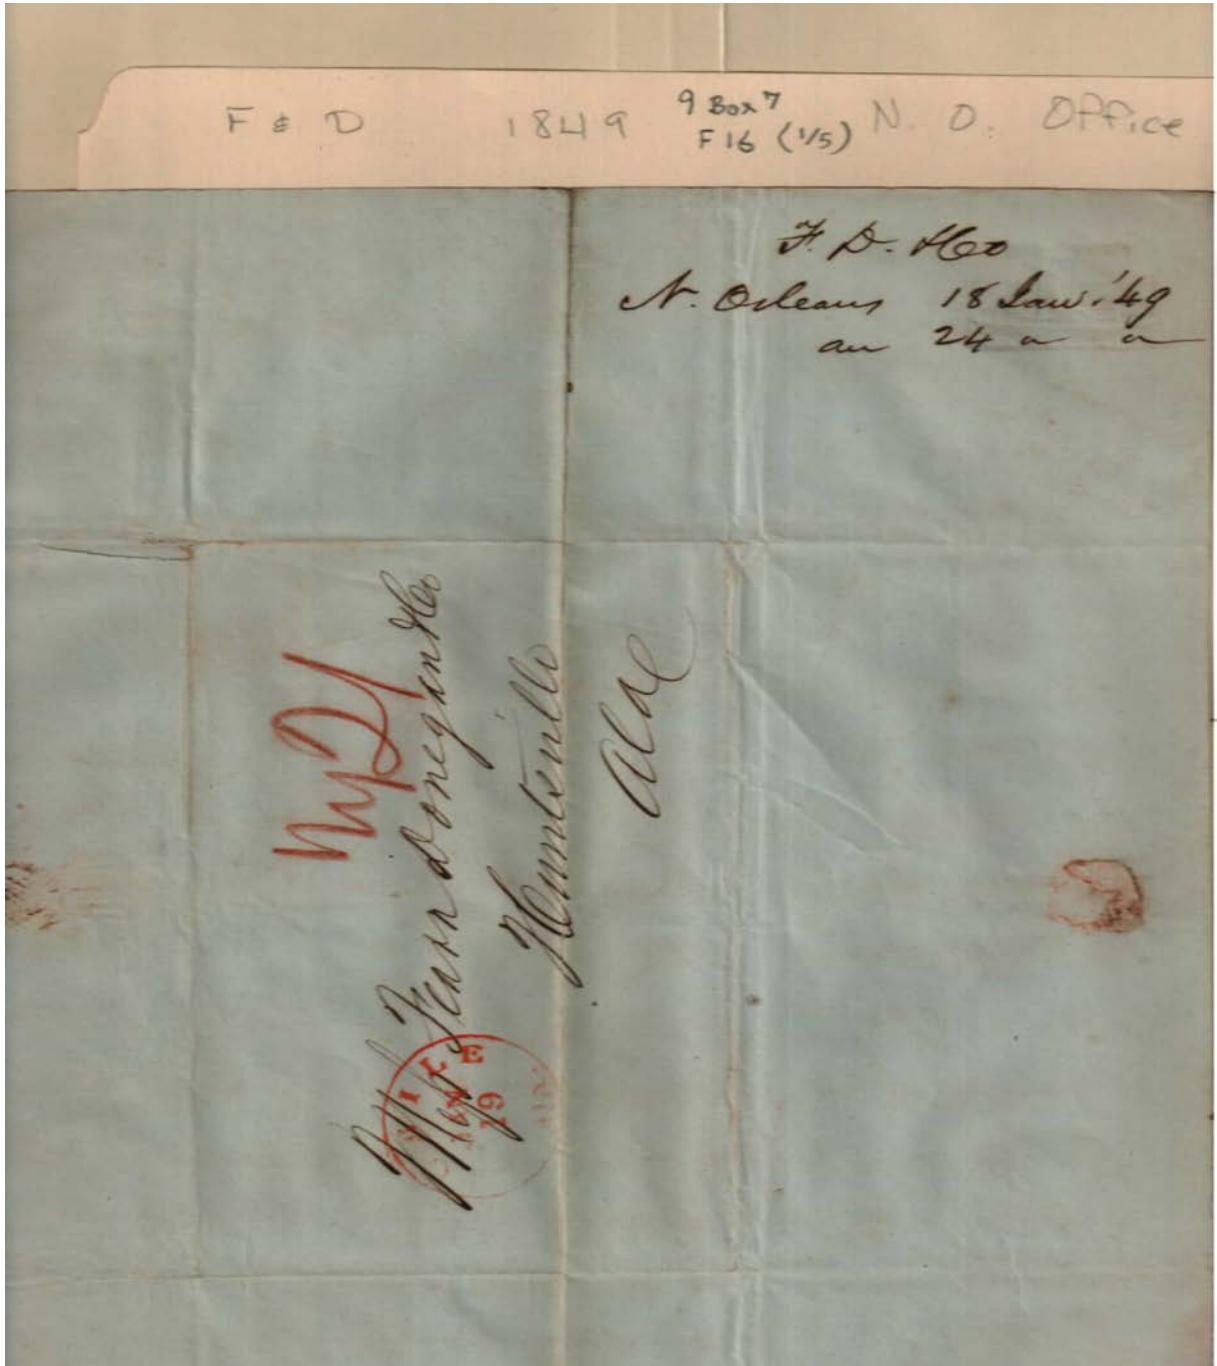 F & D 1849 9 Box 7 N. O. Office
F 16 (1/5)
F. D. &Co
N. Orleans 18 Jan. '49
an 24 " "
Messrs Fearn Donegan &Co
Huntsville
Ala
I L E
JAN
19